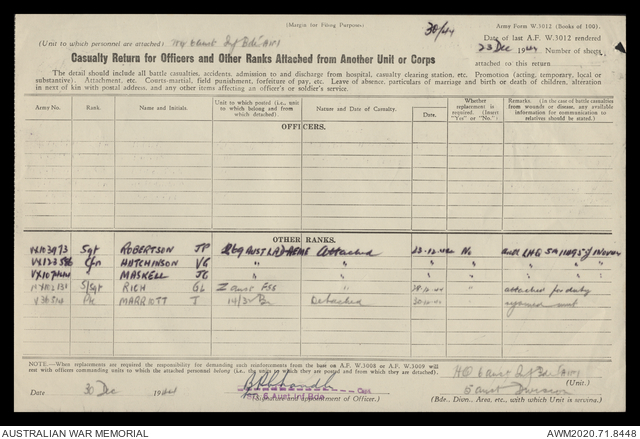 (Margin for Filing Purposes)
30/44
Army Form W.3012 (Books of 100).
Date of last A.F. W.3012 rendered
(Unit to which personnel are attached) HQ 6 Aust Inf Bde (AIF)
23 Dec 1944 Number of sheets
attached to this return
Casualty Return for Officers and Other Ranks Attached from Another Unit or Corps
The detail should include all battle casualties, accidents, admission to and discharge from hospital, casualty clearing station, etc. Promotion (acting, temporary, local or
substantive). Attachment, etc. Courts-martial, field punishment, forfeiture of pay, etc. Leave of absence, particulars of marriage and birth or death of children, alteration
in next of kin with postal address, and any other items affecting an officer's or soldier's service.
Army No. Rank. Name and Initials. Unit to which posted (i.e., unit to which belong and from which detached). Nature and Date of Casualty. Date. Whether replacement is required. (Insert "Yes" or "No.") Remarks. (In the case of battle casualties from wounds or disease, any available information for communication to relatives should be stated.)
OFFICERS.
OTHER RANKS.
VX103973 Sgt ROBERTSON JP 269 AUST LAD AEME Attached 23.12.44 No
Cfn HUTCHINSON VG " " " "
" MASKELL JG " " " "
S/Sgt RICH GL Aust FSS " 28.12.44 attached for duty
Pte MARRIOTT T 14/32 Bn Detached rejoined unit
NOTE—When replacements are required the responsibility for demanding such reinforcements from the base on A.F. W.3008 or A.F. W.3009 will
rest with officers commanding the attached personnel belong (i.e., the units to which they are posted and from which they are detached).
HQ 6 Aust Inf Bde (AIF)
(Unit.)
Date 30 Dec 1944
Capt
6 Aust Inf Bde
(Signature and appointment of Officer.)
5 Aust Division
(Bde., Divn., Area, etc., with which Unit is serving.)
AUSTRALIAN WAR MEMORIAL
AWM2020.71.8448